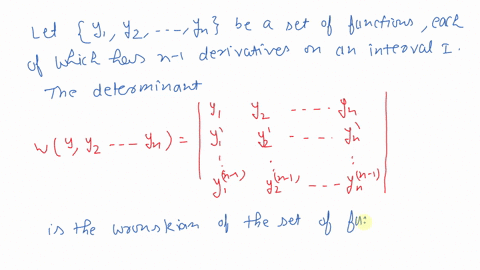 Let {y₁, y₂, ---, yₙ} be a set of functions, each
of which has n-1 derivatives on an interval I.
The determinant
W(y, y₂ --- yₙ) = | y₁ y₂ ---- yₙ |
| y₁' y₂' ---- yₙ' |
| ⋮ ⋮ ⋮ |
| y₁⁽ⁿ⁻¹⁾ y₂⁽ⁿ⁻¹⁾ --- yₙ⁽ⁿ⁻¹⁾ |
is the wronskian of the set of fu